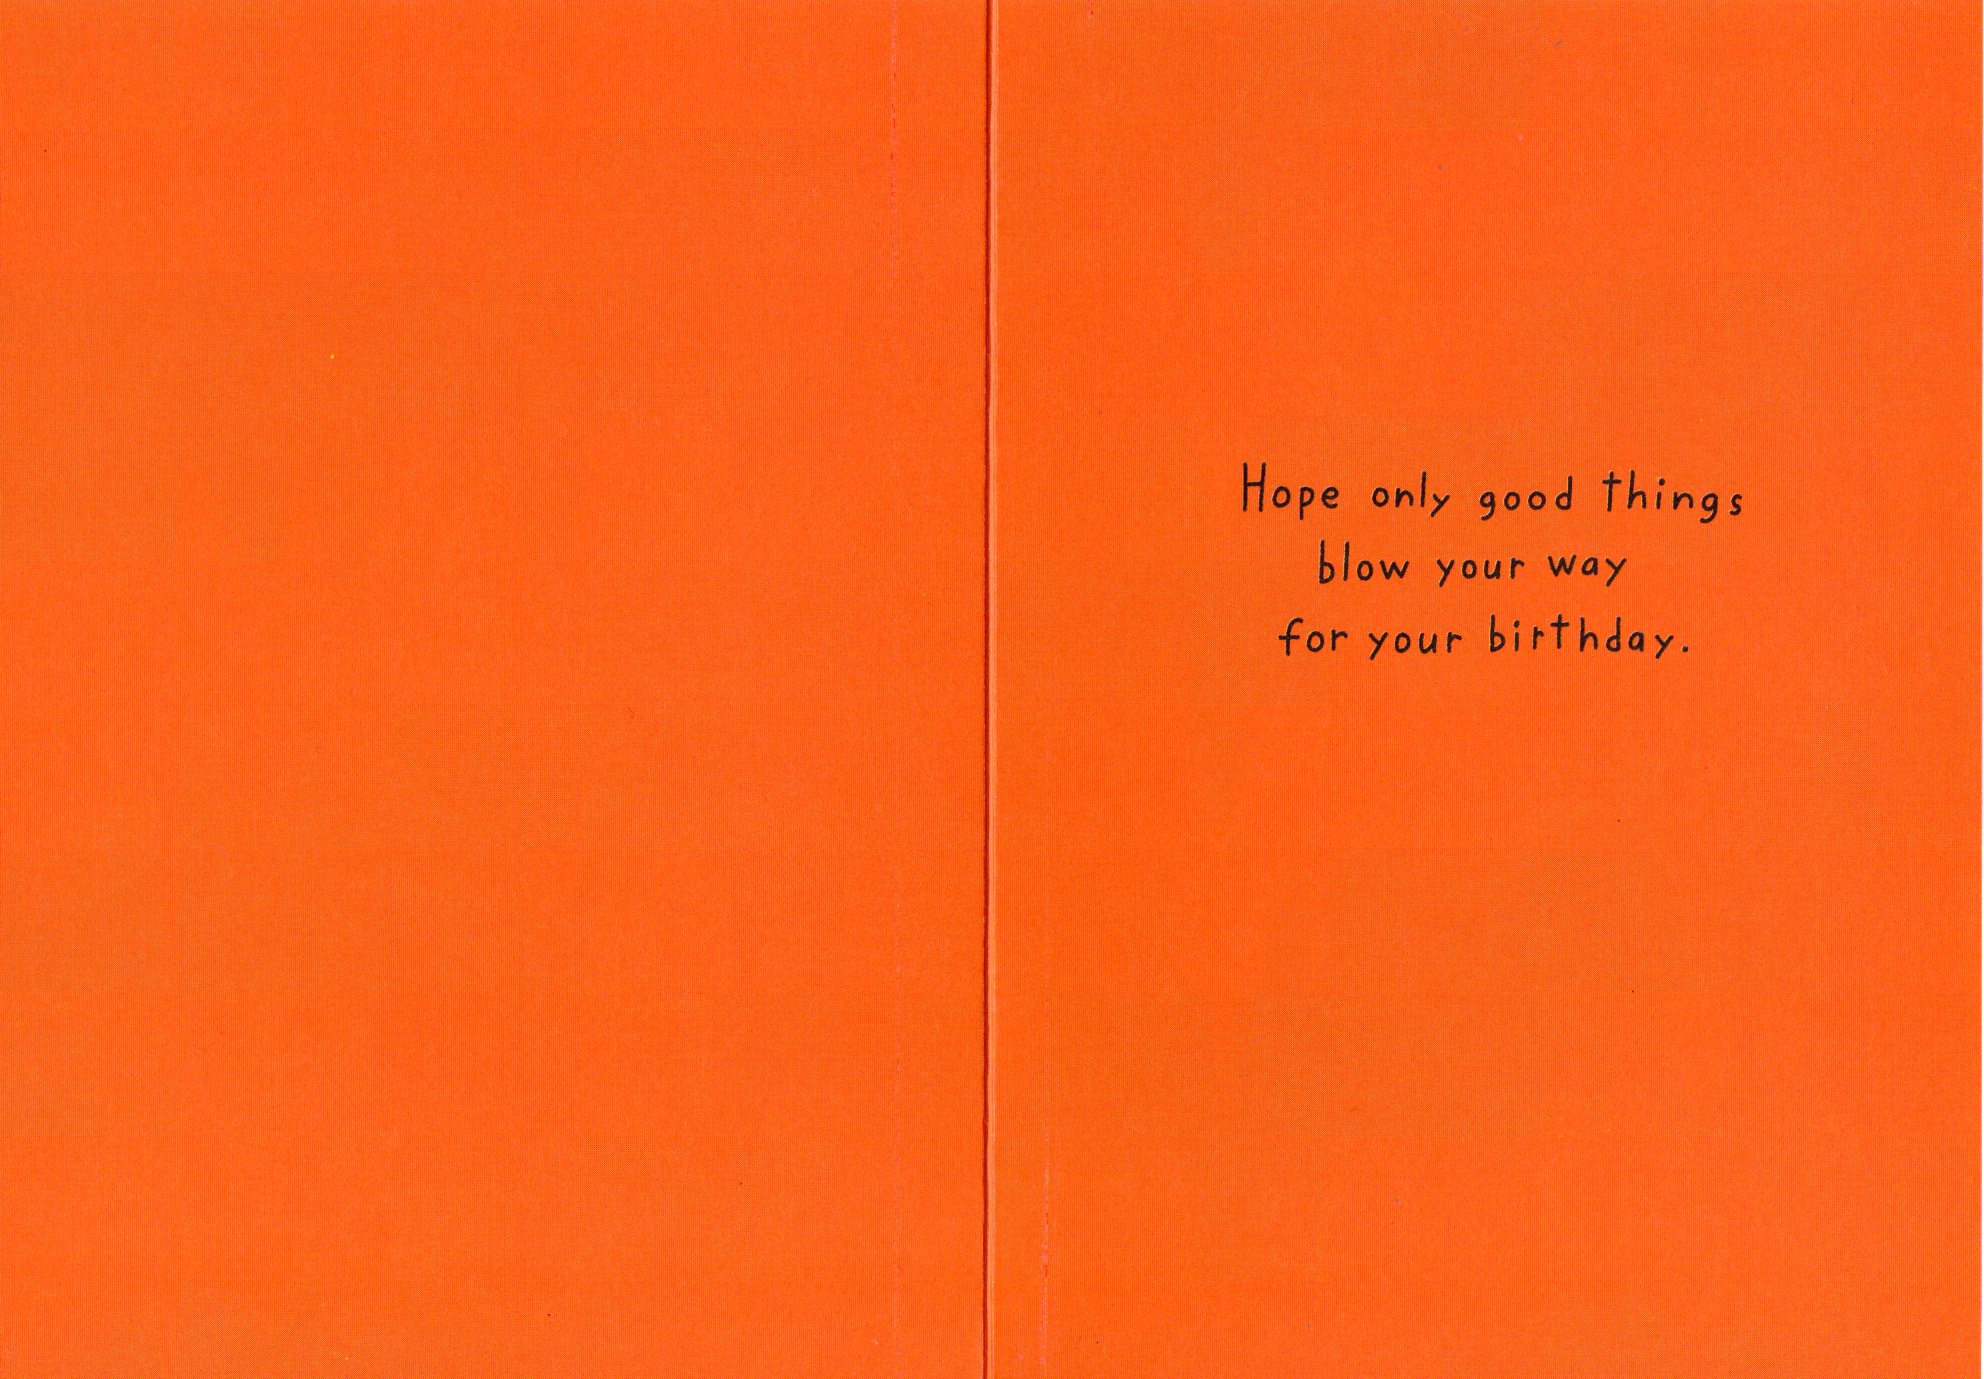 Hope only good things
blow your way
for your birthday.